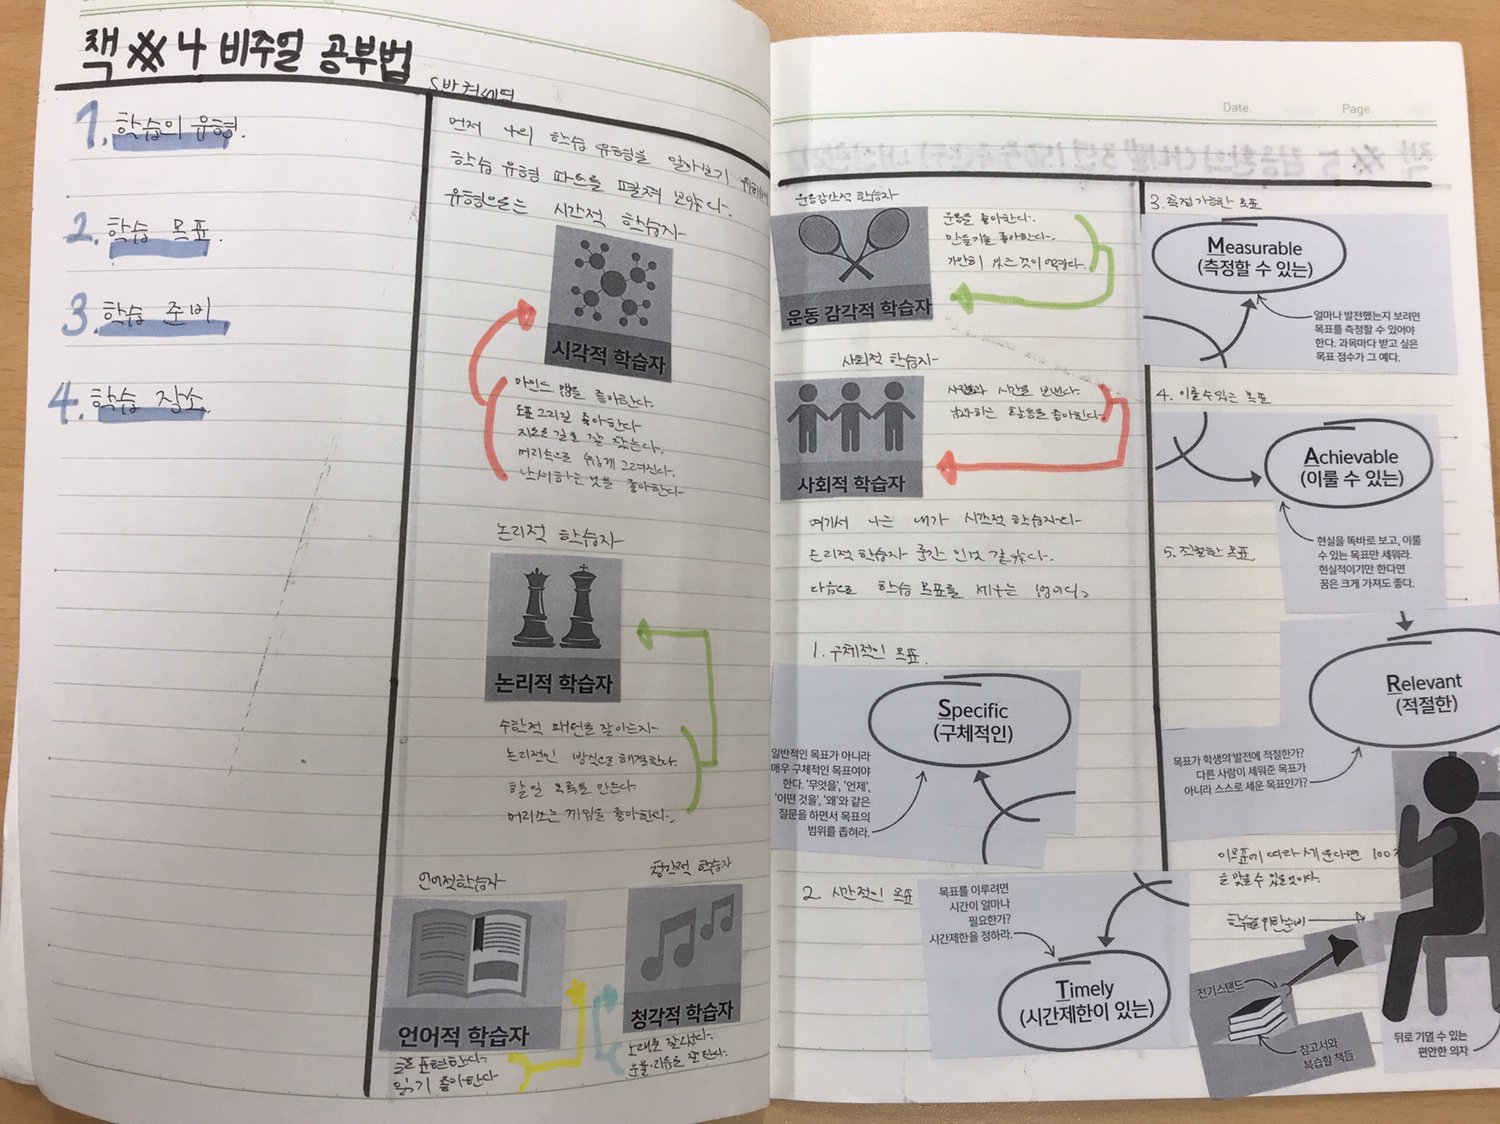 책 #4 비주얼 공부법
1. 학습의 유형.
2. 학습 목표.
3. 학습 준비
4. 학습 장소.
먼저 나의 학습 유형을 알아보기 위해서
학습 유형 파트를 펼쳐 보았다.
유형으로는 시각적 학습자
시각적 학습자
마인드 맵을 좋아한다.
도표 그리길 좋아한다
지도로 길을 잘 찾는다.
머리속으로 쉽게 그려진다.
낙서하는 것을 좋아한다
논리적 학습자
논리적 학습자
수학적 패턴을 잘 아는지
논리적인 방식으로 해결한다.
할일 목록을 만든다.
머리쓰는 게임을 좋아한다.
언어적학습자
언어적 학습자
글로 표현한다.
읽기 좋아한다
청각적 학습자
청각적 학습자
노래를 잘한다.
운율·리듬을 잘 탄다.
Date.
Page
운동감각적 학습자
운동 감각적 학습자
운동을 좋아한다.
만들기를 좋아한다.
가만히 있는 것이 어렵다.
사회적 학습자
사회적 학습자
사람들과 시간을 보낸다.
남과하는 활동을 좋아한다.
여기서 나는 내가 시각적 학습자와
논리적 학습자 중간 인것 같았다.
다음으로 학습 목표를 세우는 법이다.
1. 구체적인 목표.
Specific
(구체적인)
일반적인 목표가 아니라
매우 구체적인 목표여야
한다. ‘무엇을’, ‘언제’,
‘어떤 것을’, ‘왜’와 같은
질문을 하면서 목표의
범위를 좁혀라.
2. 시간적인 목표
목표를 이루려면
시간이 얼마나
필요한가?
시간제한을 정하라.
Timely
(시간제한이 있는)
3. 측정 가능한 목표
Measurable
(측정할 수 있는)
얼마나 발전했는지 보려면
목표를 측정할 수 있어야
한다. 과목마다 받고 싶은
목표 점수가 그 예다.
4. 이룰수있는 목표
Achievable
(이룰 수 있는)
현실을 똑바로 보고, 이룰
수 있는 목표만 세워라.
현실적이기만 한다면
꿈은 크게 가져도 좋다.
5. 적절한 목표
Relevant
(적절한)
목표가 학생의 발전에 적절한가?
다른 사람이 세워준 목표가
아니라 스스로 세운 목표인가?
이 목표에 따라 세운다면 100
을 맞을 수 있을것이다.
학습을 위한 준비
전기스탠드
참고서와
복습할 책들
뒤로 기댈 수 있는
편안한 의자